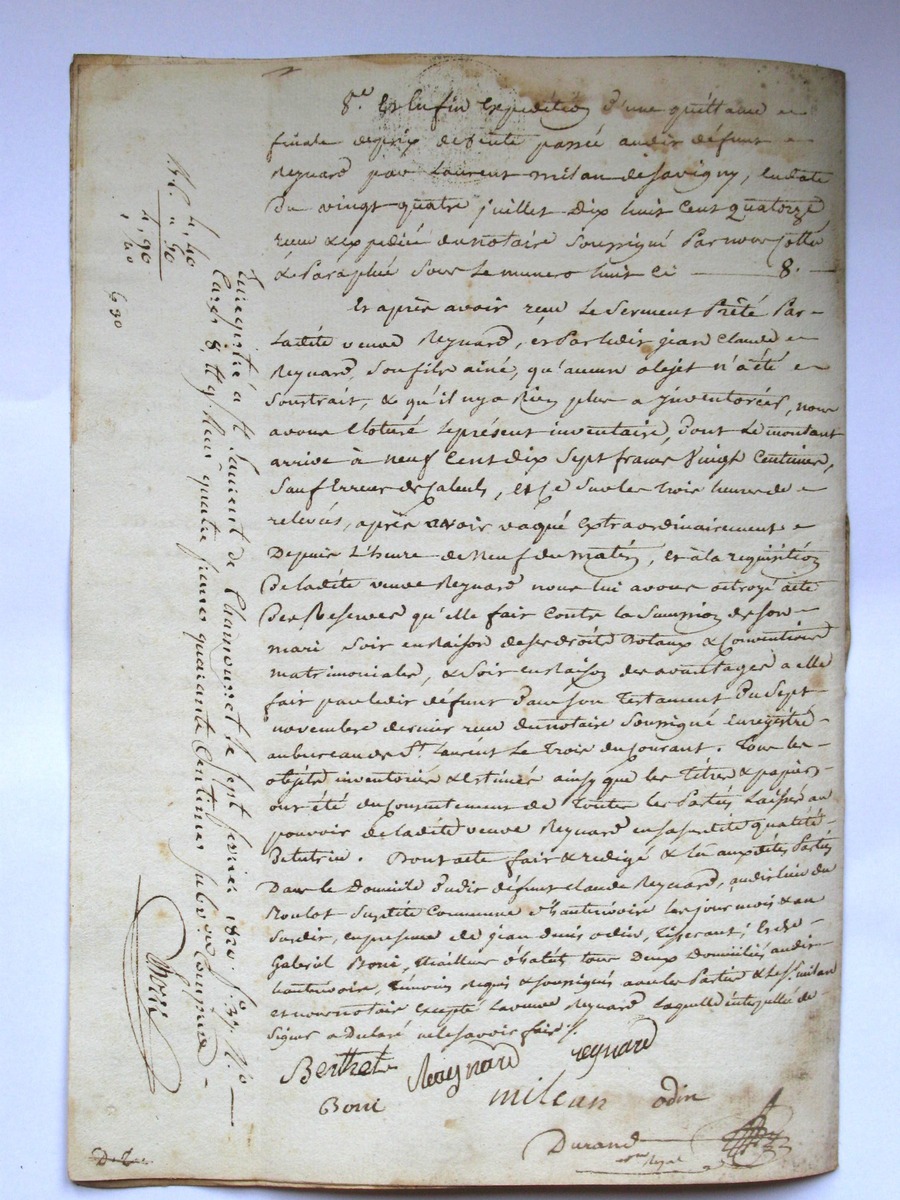 8.e Et Enfin Expédition d'une quittance
finale de prix de vente passée audit défunt
Reynard par Laurent milan de savigny, en date
Du vingt quatre juillet Dix huit Cent quatorze
reçue & expédiée du notaire Soussigné Par nous Cottée
& Paraphée Sous Le numero huit Ci — 8. —
Et après avoir reçu Le Serment Prêté Par
Ladite veuve Reynard, et Par ledit jean Claude
Reynard, Son fils ainé, qu'aucun objet n'a été
Soustrait, & qu'il n'y a Rien plus a jnventorier, nous
avons Cloturé Le présent inventaire, Dont Le montant
arrive à neuf Cent dix Sept francs Vingt Centimes,
Sauf Erreur de Calculs, et Ce Sur les trois heures de
relevée, après avoir vaqué extraordinairement
Depuis L'heure de neuf du matin, et à la requisition
De ladite veuve Reynard nous lui avons octroyé acte
Des Reserves qu'elle fait Contre la Succession de Son
mari Soit en raison de ses droits Dotaux & Conventions
matrimoniales, & Soit en raison des avantages a elle
fait par ledit défunt Dans Son Testament Du Sept
novembre dernier reçu du notaire Soussigné Enregistré
au bureau de St. Laurent Le Trois du Courant. Tous les
objets inventoriés & Estimés ainsy que les Titres & papiers
ont été du Consentement de Toutes les Parties Laissés au
pouvoir de ladite veuve Reynard en sa susdite qualité
De tutrice. Dont acte fait & redigé & lu auxdites Parties
Dans le Domicile Dudit défunt Claude Reynard, audit lieu du
Boulot Susdite Commune d'hauterivoire les jour mois & an
Susdit, en presence de jean denis odin, Tisserant, Et de
Gabriel Boni, tous Deux Domiciliés audit
hauterivoire, Témoins Requis & Soussignés avec les Parties & led. Sr. milan
et nous notaire excepté la veuve Reynard Laquelle interpellée de
Signer a Declaré ne le Savoir faire
Berthet Reynard reynard
Boni milean odin
Durand
nore Royal
4,40
" 50
4,90
Enregistré a St Laurent de Chamousset le sept fevrier
Reçu quatre francs quarante Centimes